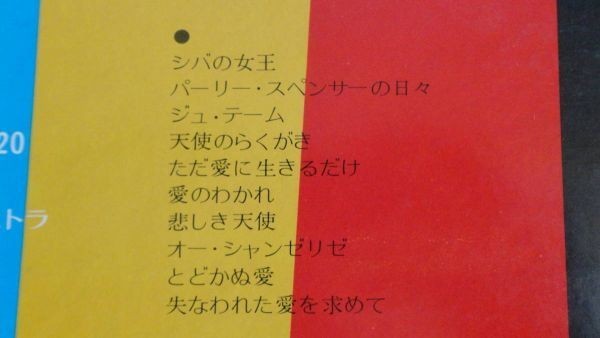 ●
シバの女王
パーリー・スペンサーの日々
ジュ・テーム
天使のらくがき
ただ愛に生きるだけ
愛のわかれ
悲しき天使
オー・シャンゼリゼ
とどかぬ愛
失なわれた愛を求めて
20
トラ